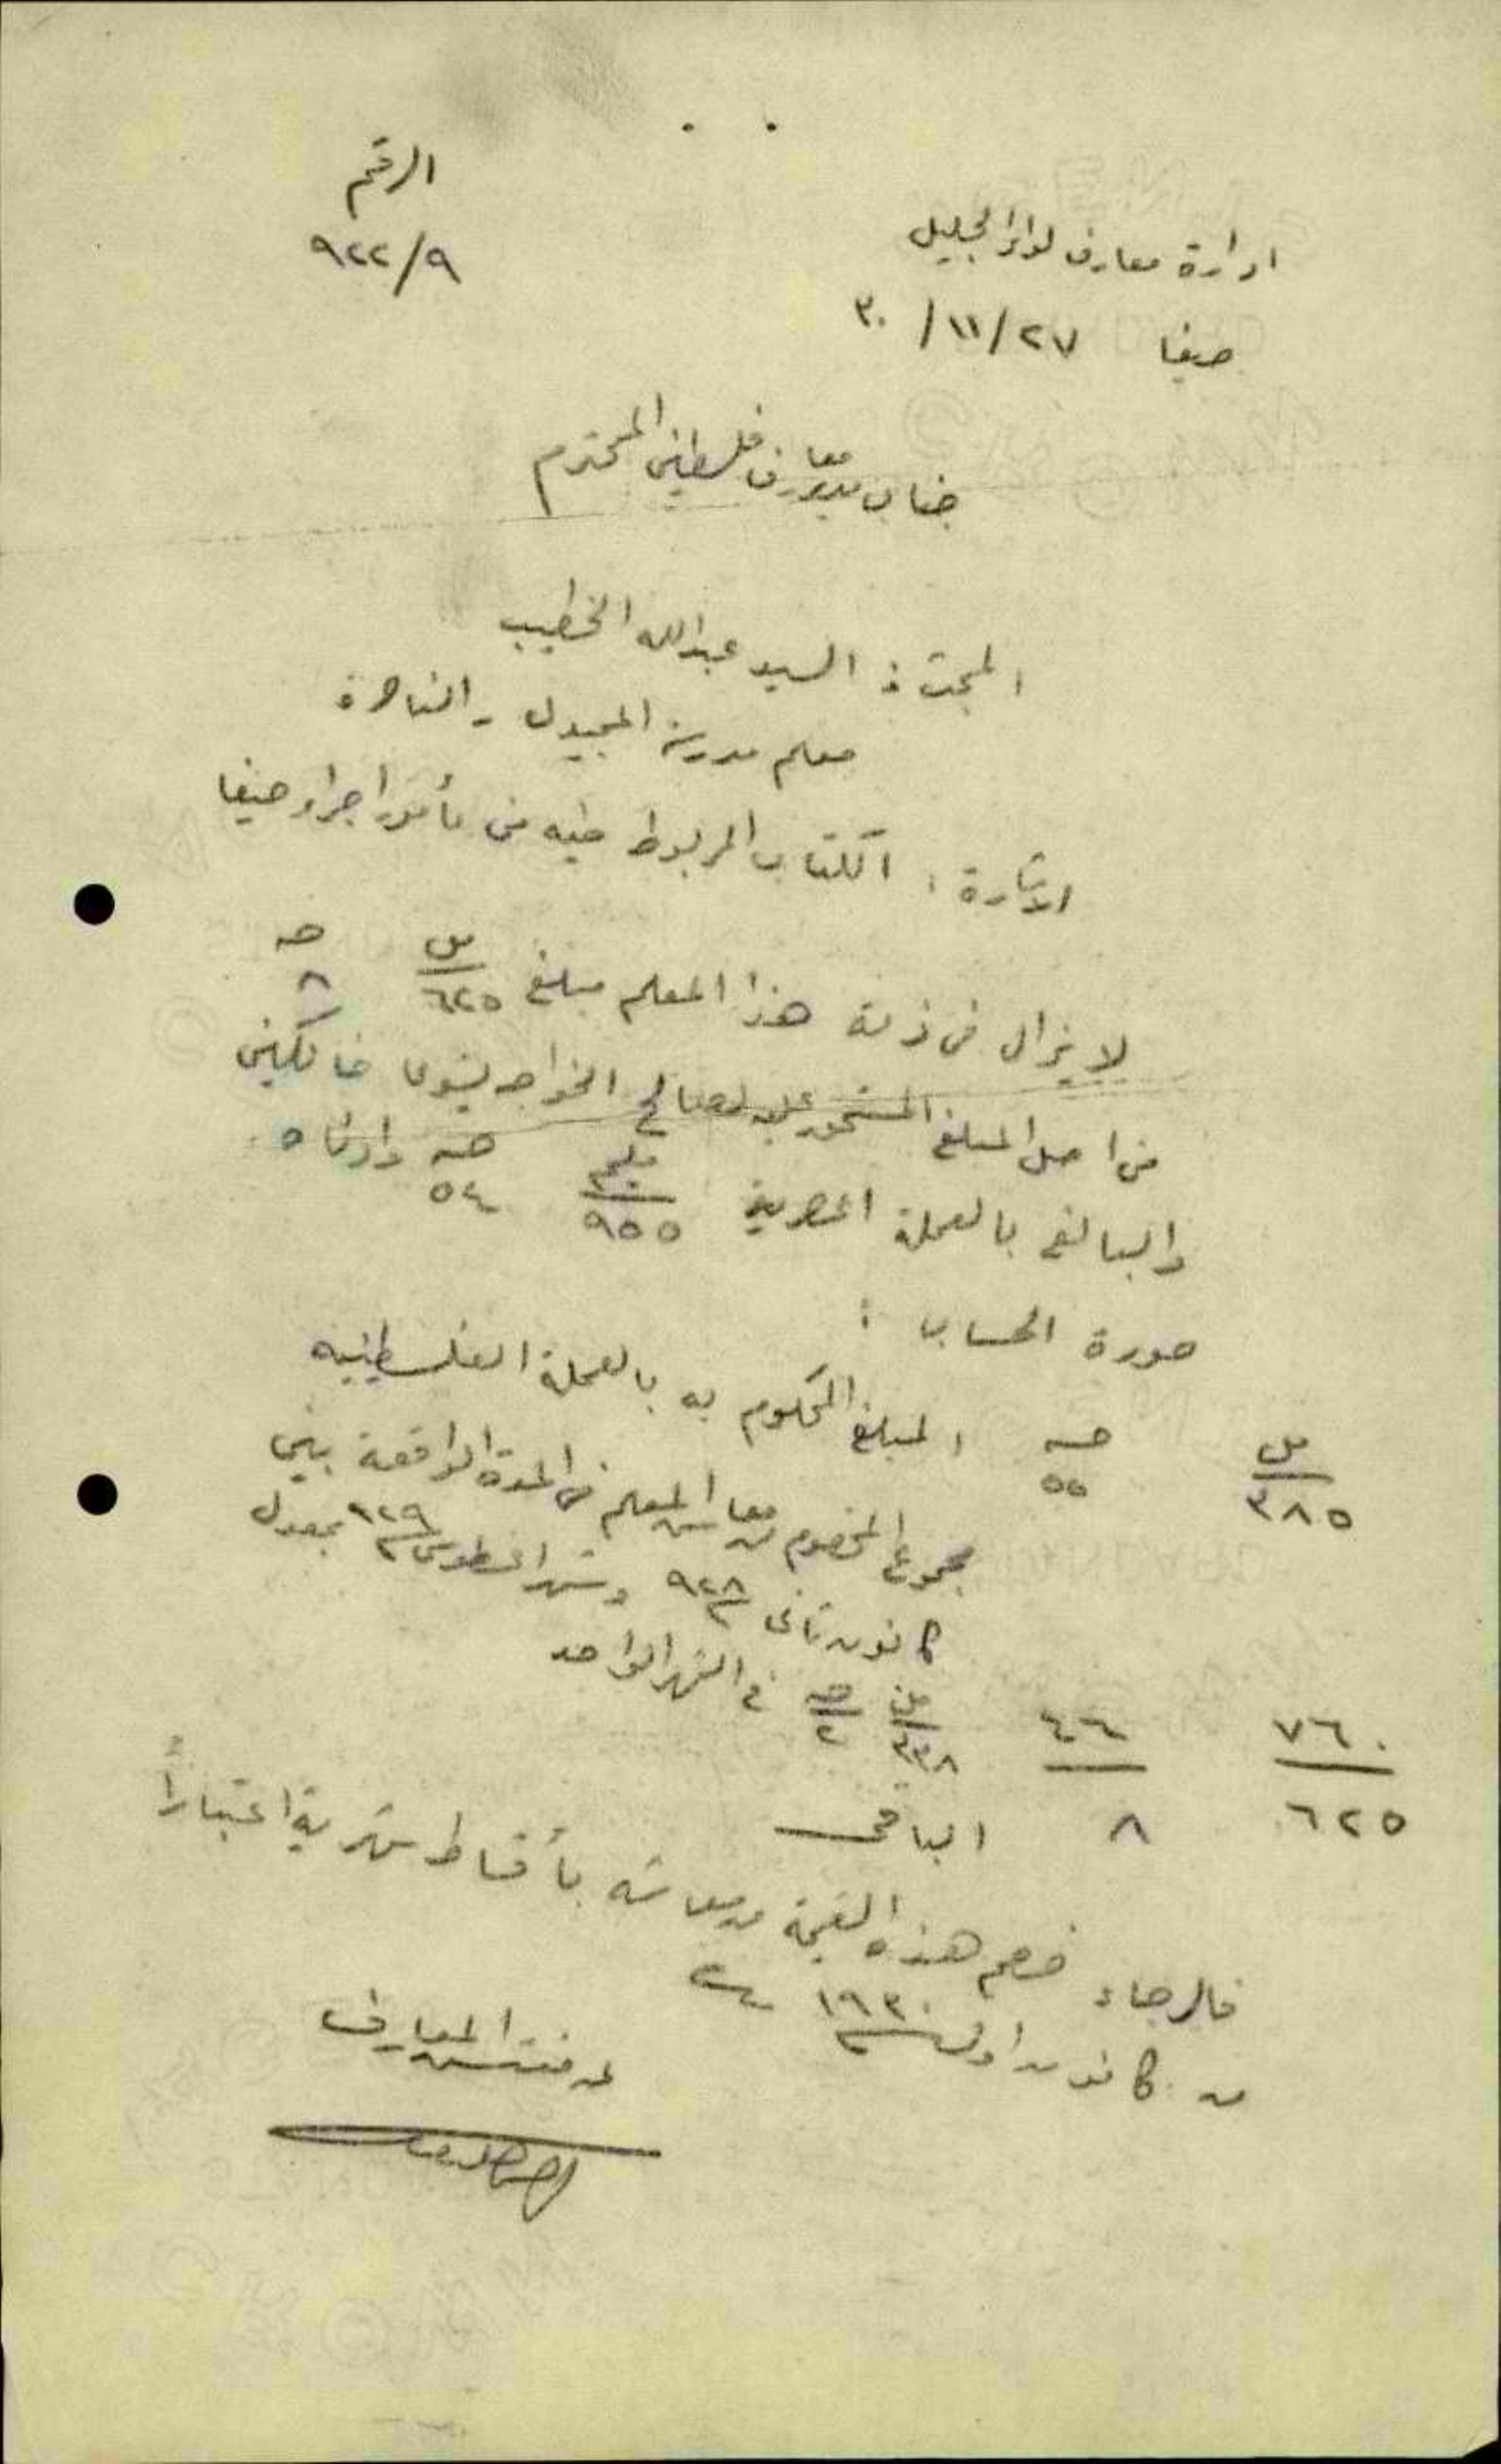 الرقم
٩٢٢/٩
ادارة معارف لواء الجليل
حيفا ٢٧/١١/٣٠
جناب مدير معارف فلسطين المحترم
المبحث : السيد عبدالله الخطيب
معلم مدرسة المجيدل - الناصرة
الاشارة : الكتاب المربوط طيه من مأمور اجراء حيفا
لا يزال في ذمة هذا المعلم مبلغ مل ٦٢٥ جنيه ٨
من اصل المبلغ المستحق عليه لصالح الخواجه يشوع خانكين
والبالغ بالعملة المصرية مليم ٩٥٥ جنيه ٥٤ وارناه
صورة الحساب :
مل ٣٨٥ جنيه ٥٥ المبلغ المحكوم به بالعملة الفلسطينيه
مجموع المخصوم من معاش المعلم في المدة الواقعة بين
كانون ثاني ٩٢٨ وشهر اغسطوس ٩٢٩ بمعدل
مل ٣٣٨ جنيه ٢ في الشهر الواحد
٧٦٠ ٤٦
٦٢٥ ٨ الباقي
فالرجاء خصم هذه القيمة من معاشه بأقساط شهرية اعتباراً
من كانون اول ١٩٣٠
عن مفتش المعارف